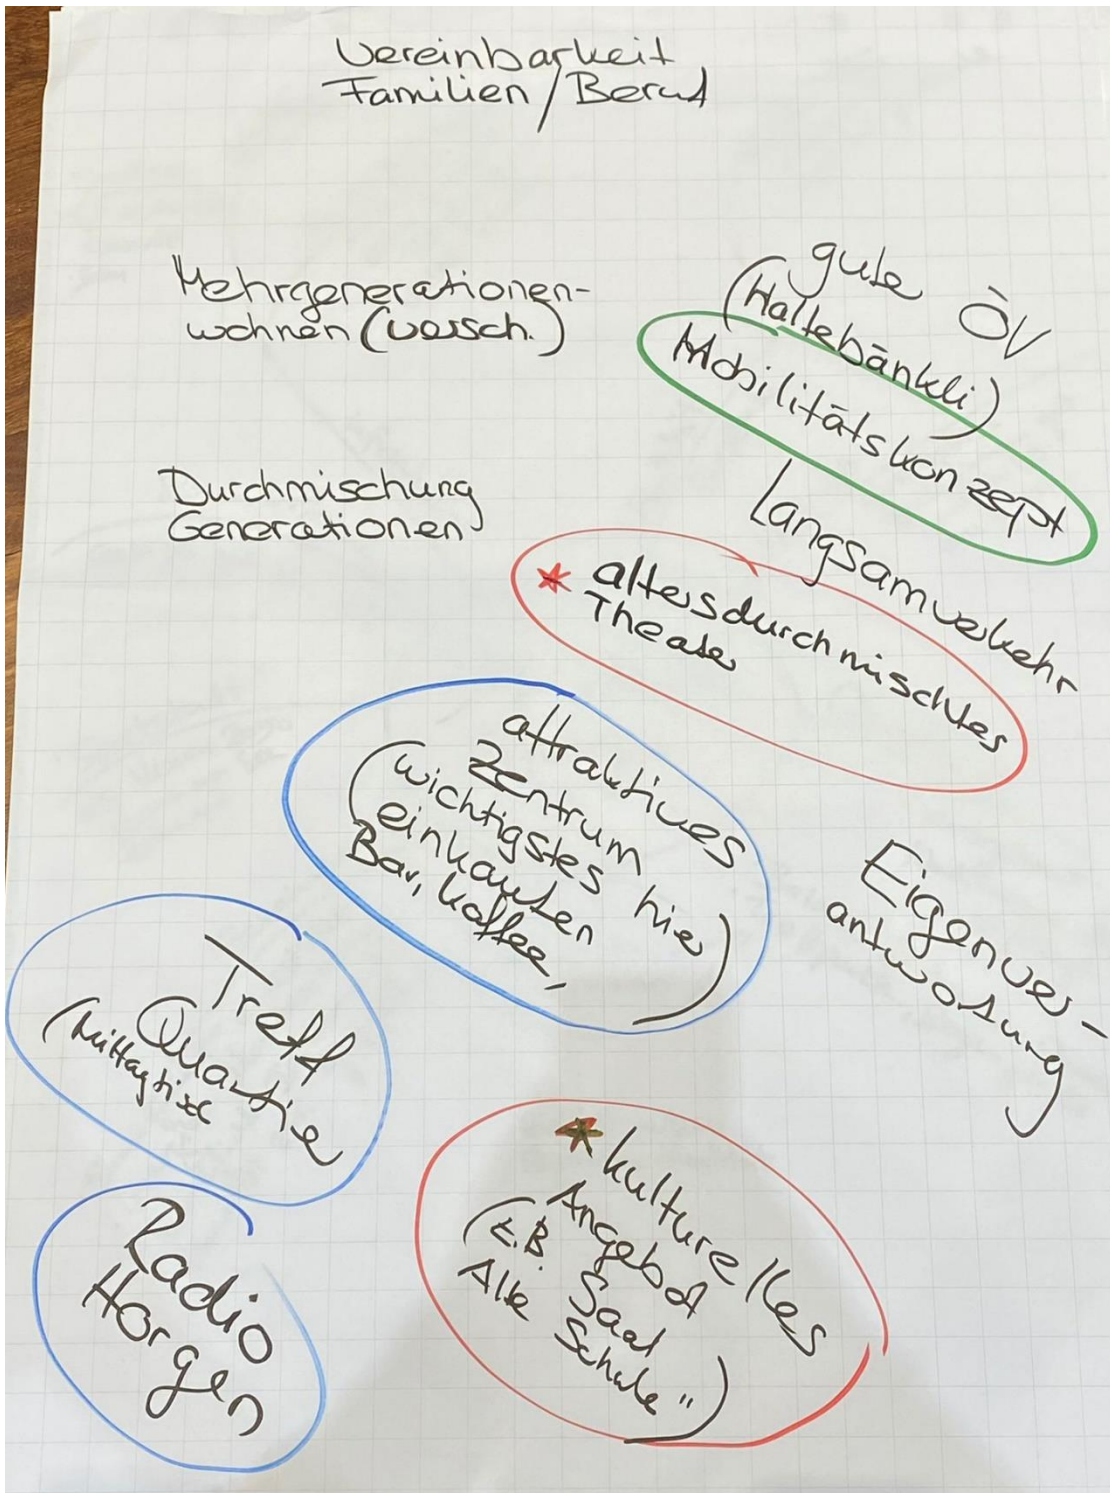 Vereinbarkeit
Familien/Beruf
Mehrgenerationen-
wohnen (versch.)
gute ÖV
(Haltebänkli)
Mobilitätskonzept
Durchmischung
Generationen
Langsamverkehr
* altersdurchmischtes
Theater
attraktives
Zentrum
(wichtigstes hier
einkaufen
Bar, Kaffee,)
Eigenver-
antwortung
Treff
Quartier
(Mittagtisch
Radio
Horgen
* kulturelles
Angebot
(z.B. Saal
Alte Schule")